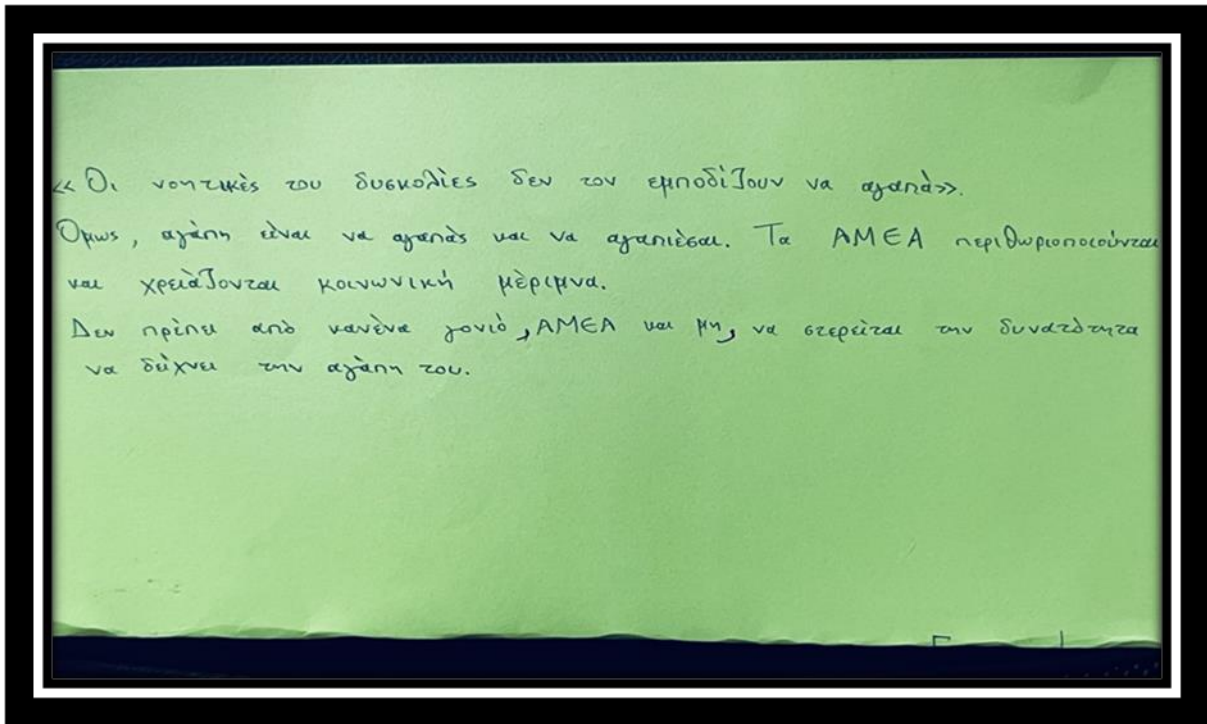 «Οι νοητικές του δυσκολίες δεν τον εμποδίζουν να αγαπά».
Όμως, αγάπη είναι να αγαπάς και να αγαπιέσαι. Τα ΑΜΕΑ περιθωριοποιούνται
και χρειάζονται κοινωνική μέριμνα.
Δεν πρέπει από κανένα γονιό, ΑΜΕΑ και μη, να στερείται την δυνατότητα
να δείχνει την αγάπη του.